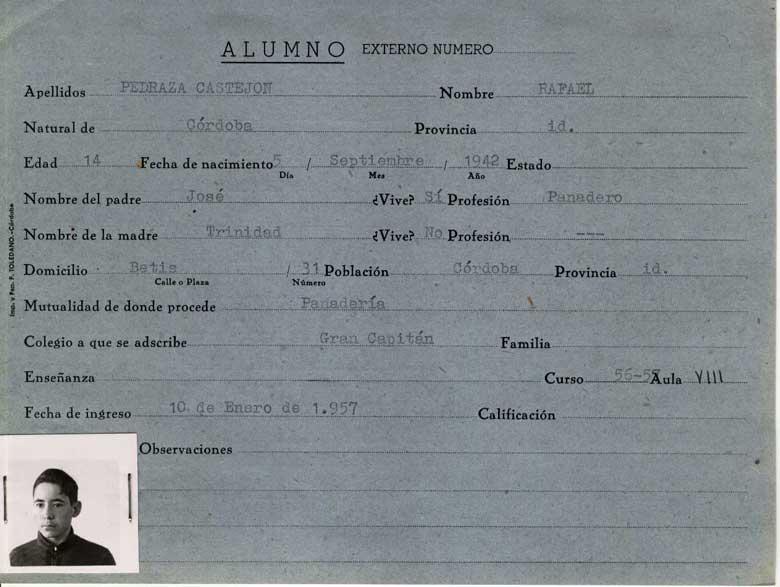 ALUMNO EXTERNO NUMERO
Apellidos PEDRAZA CASTEJON Nombre RAFAEL
Natural de Córdoba Provincia id.
Edad 14 Fecha de nacimiento 5 / Septiembre / 1942 Estado
Día Mes Año
Nombre del padre José ¿Vive? Sí Profesión Panadero
Nombre de la madre Trinidad ¿Vive? No Profesión ---
Domicilio Betis / 31 Población Córdoba Provincia id.
Calle o Plaza Número
Mutualidad de donde procede Panadería
Colegio a que se adscribe Gran Capitán Familia
Enseñanza Curso 56-57 Aula VIII
Fecha de ingreso 10 de Enero de 1.957 Calificación
Observaciones
Imp. y Pap. F. TOLEDANO.-Córdoba